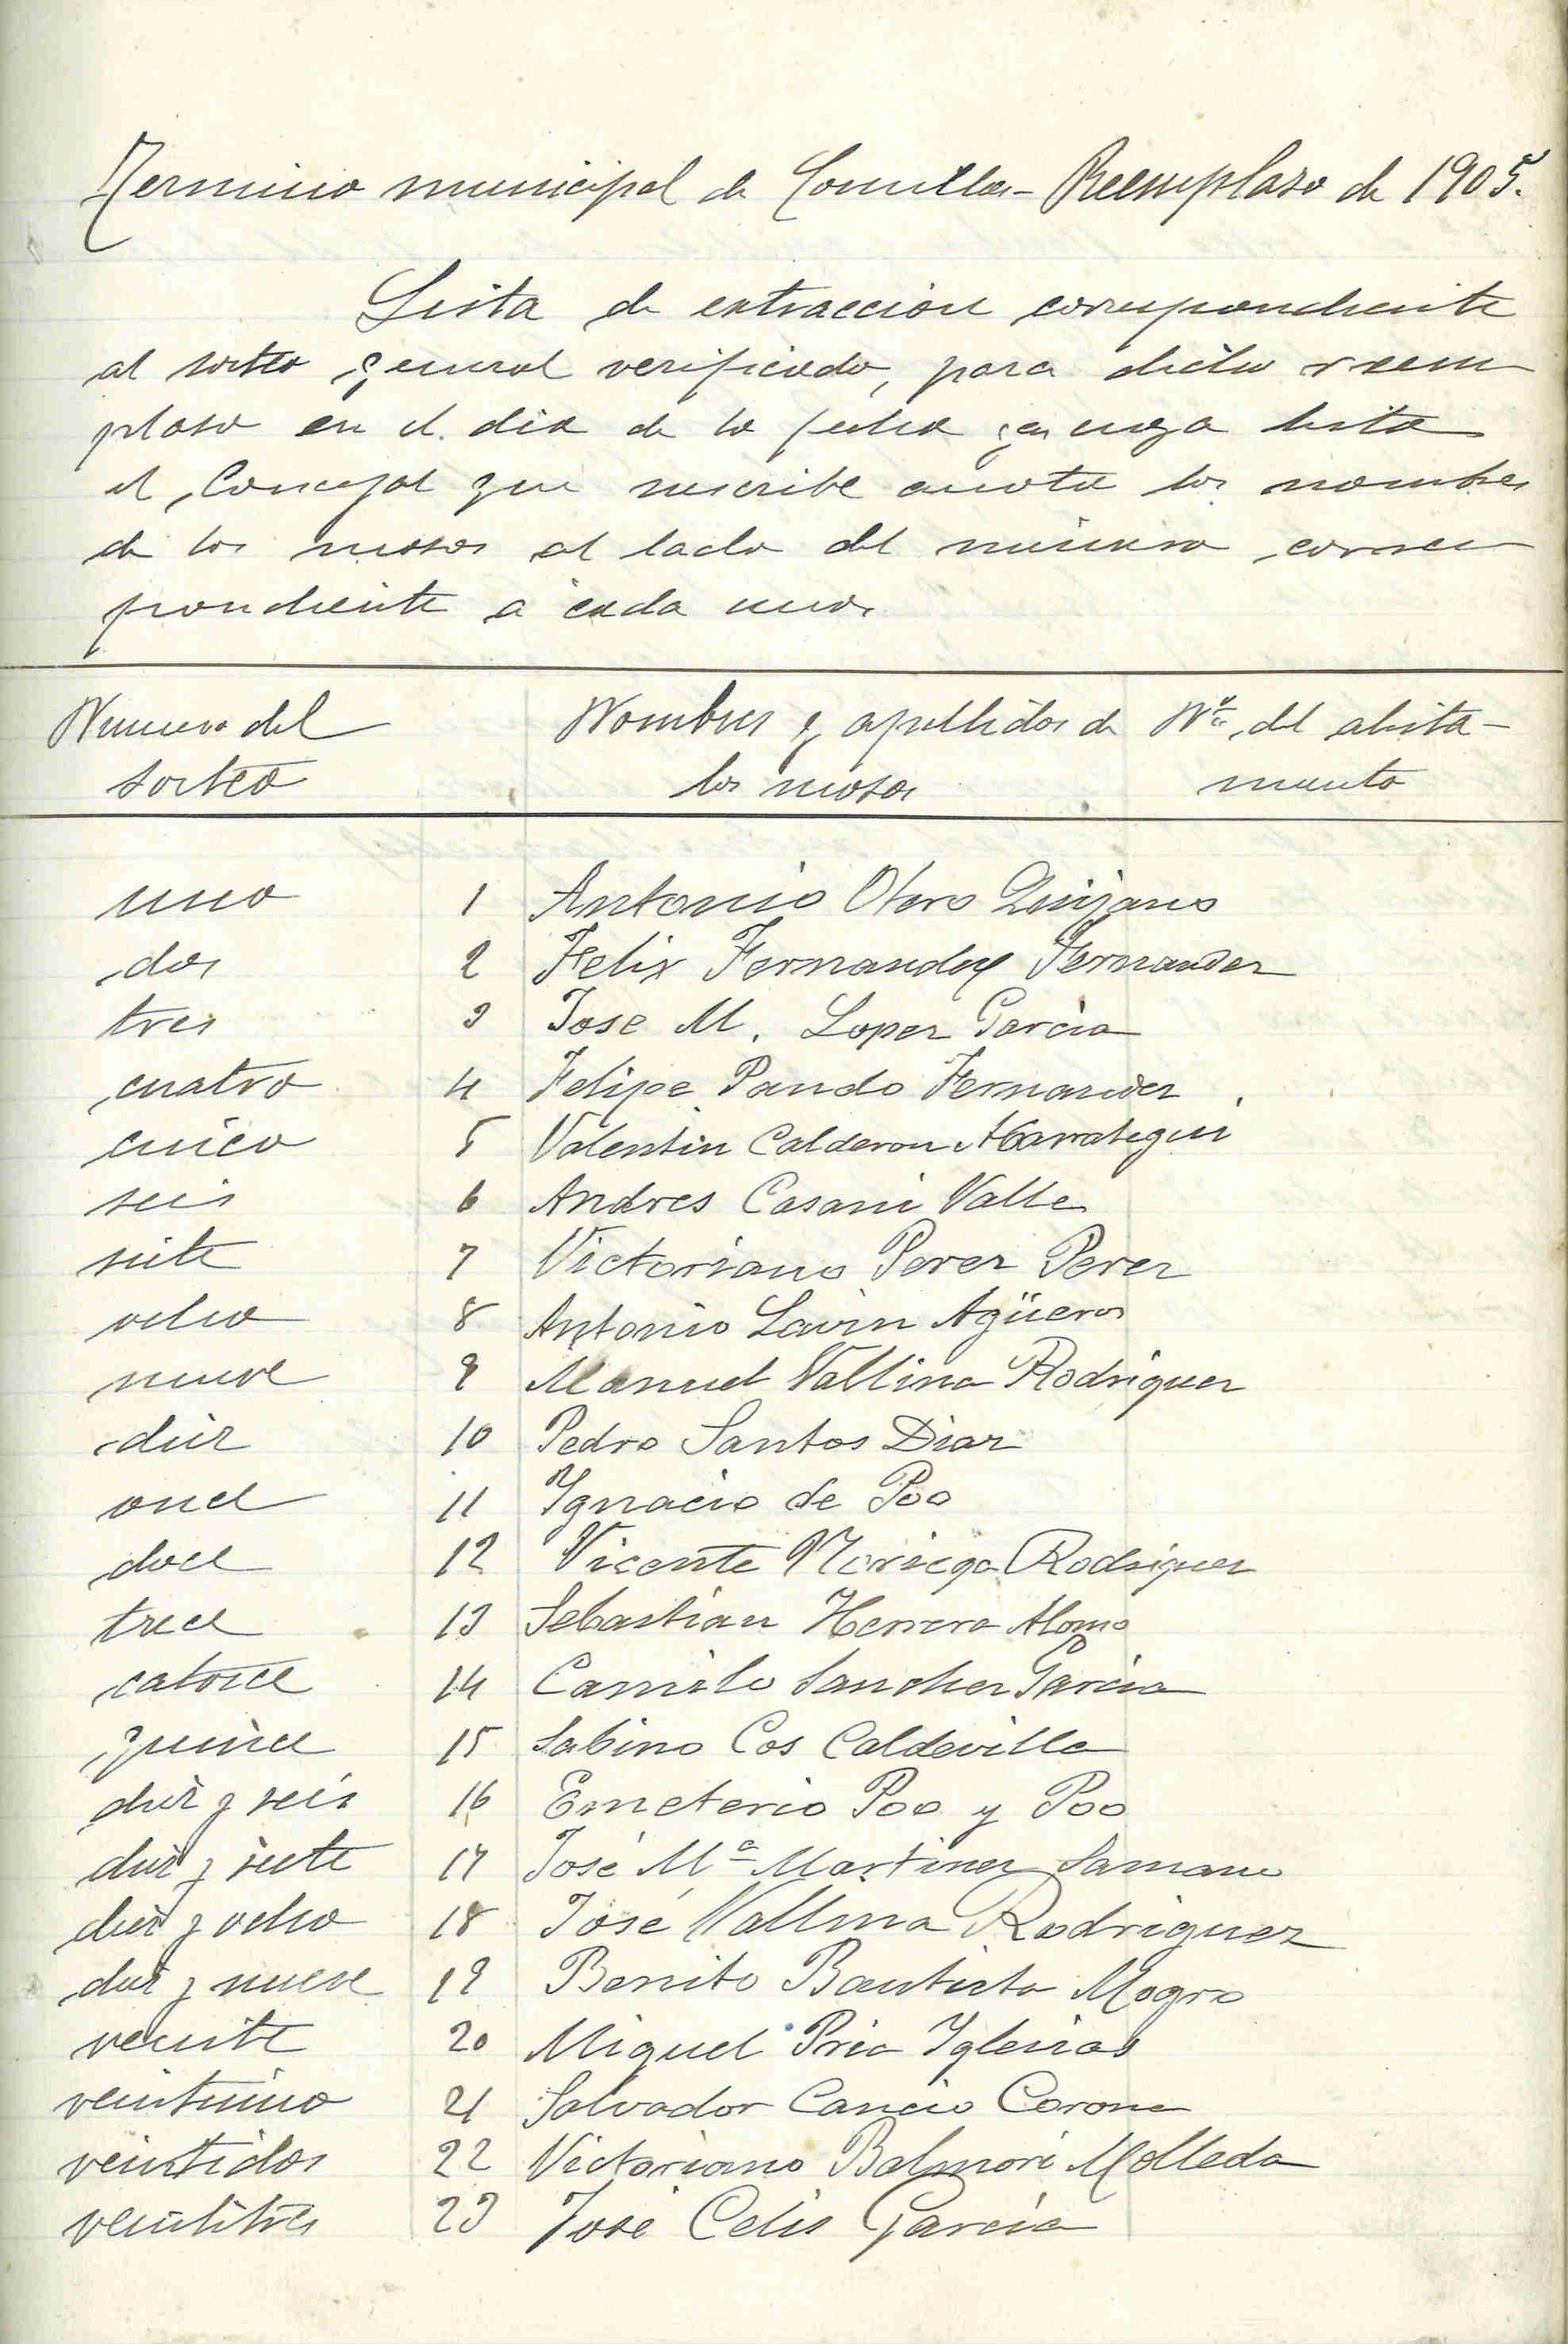 Termino municipal de Comillas - Reemplaso de 1905.
Lista de extraccion correspondiente
al sorteo general verificado, para dicho reem
plaso en el dia de la fecha en cuya lista
el Concejal que suscribe anota los nombres
de los mosos al lado del número corres
pondiente a cada uno.
Numero del Nombres y apellidos de Nº del alista-
sorteo los mosos miento
uno 1 Antonio Otero Quijano
dos 2 Felix Fernandez Fernandez
tres 3 Jose M. Lopez Garcia
cuatro 4 Felipe Pando Fernandez
cinco 5 Valentin Calderon
seis 6 Andres Casani Valle
siete 7 Victoriano Perez Perez
ocho 8 Antonio Lavin Agüeros
nueve 9 Manuel Vallina Rodriguez
diez 10 Pedro Santos Diaz
once 11 Ygnacio de Poo
doce 12 Vicente Noriega Rodriguez
trece 13 Sebastian Herrera Alonso
catorce 14 Camilo Sanchez Garcia
quince 15 Sabino Cos Caldevilla
diez y seis 16 Emeterio Poo y Poo
diez y siete 17 José Mª Martinez Samano
diez y ocho 18 José Vallina Rodriguez
diez y nueve 19 Benito Bautista Mogro
veinte 20 Miguel Pria Yglesias
veintiuno 21 Salvador Cancio Corona
veintidos 22 Victoriano Balmori Molleda
veintitres 23 José Celis García